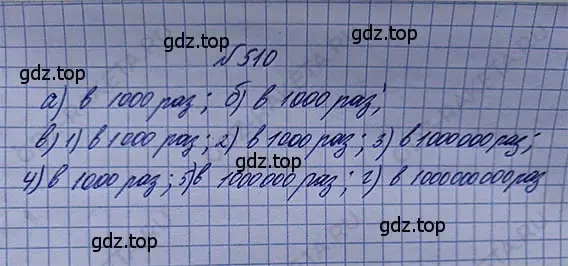 gdz.top
№510
gdz.top
gdz.top
а) в 1000 раз; б) в 1000 раз;
в) 1) в 1000 раз; 2) в 1000 раз; 3) в 1000000 раз;
gdz.top
4) в 1000 раз; 5) в 1000000 раз; г) в 1000000000 раз
gdz.top
gdz.top